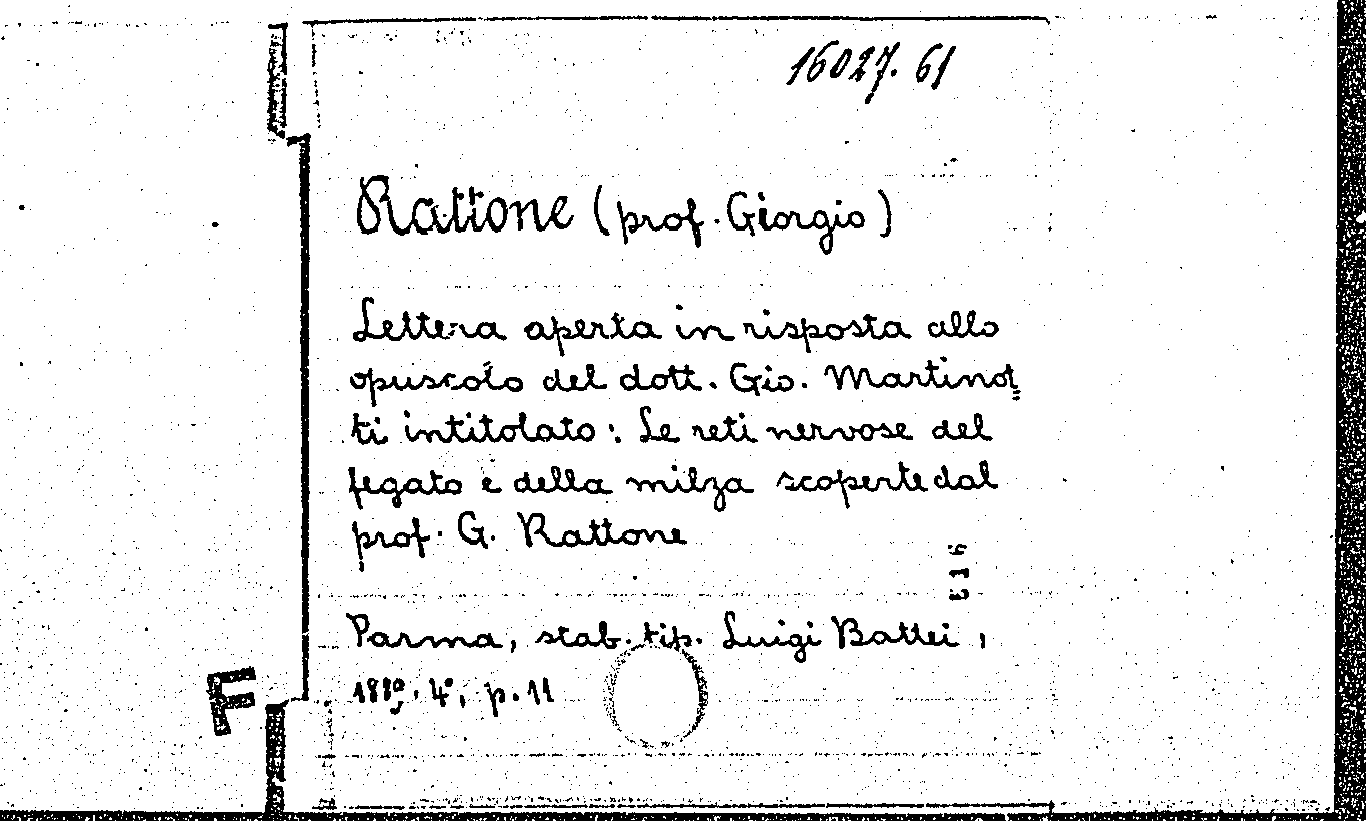 16027. 61
Rattone (prof. Giorgio)
Lettera aperta in risposta allo
opuscolo del dott. Gio. Martinot
ti intitolato: Le reti nervose del
fegato e della milza scoperte dal
prof. G. Rattone
Parma, stab. tip. Luigi Battei,
4°, p. 11
F